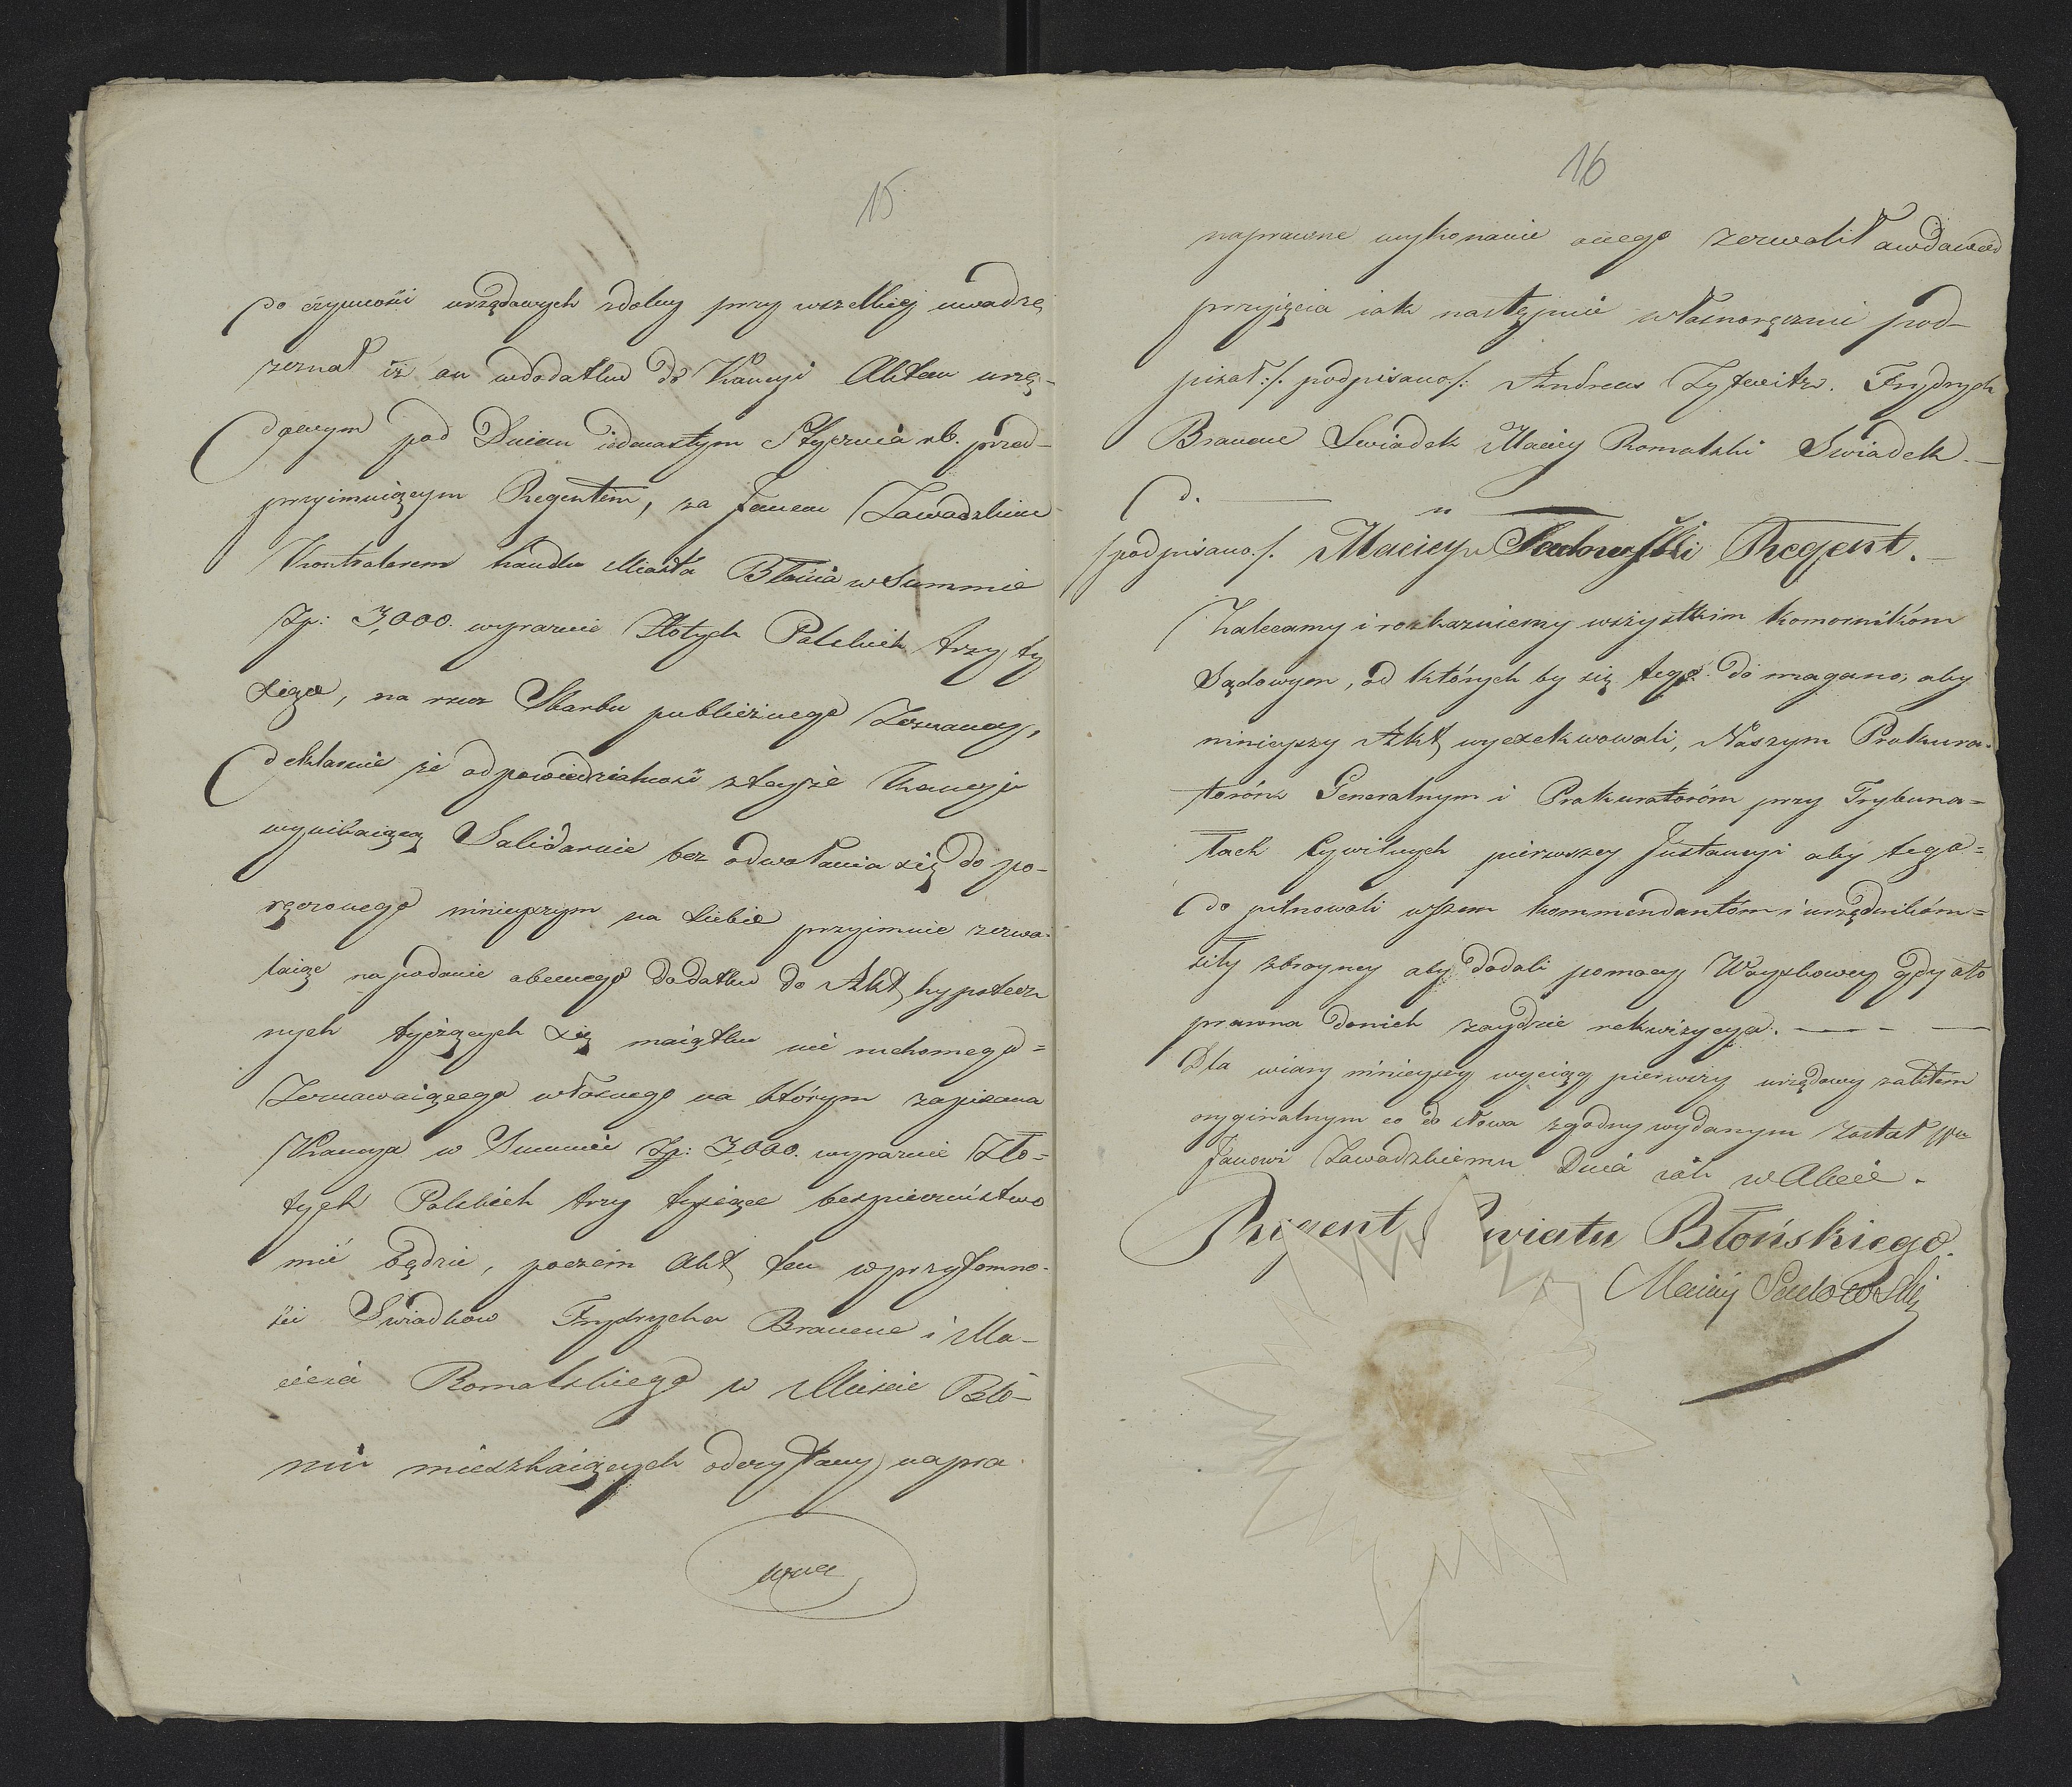 15
do czynności urzędowych zdolny przy wszelkiej uwadze
zeznał iż on wdodatku do Kaucyi Aktem urzę-
dowym pod Dniem iedenastym Stycznia rb. przed
przyimuiącym Regentem, za Janem Zawadzkim
Kontrolerem handlu Miasta Błonia w Summie
Zp: 3,000. wyraznie Złotych Polskich trzy ty
siące, na rzecz Skarbu publicznego Zeznaney,
deklaruie że odpowiedzialność zteyże Kaucyi
wynikaiącą Solidarnie bez odwołania się do po-
ręczonego ninieyszym na siebie przyimuie zezwa-
laiąc na podanie obecnego dodatku do Akt hypotecz
nych tyczących się maiątku nie ruchomego =
Zeznawaiącego własnego na którym zapisana
Kaucya w Summie Zp: 3,000. wyraznie Zło=
tych Polskich trzy tysiące bespieczeństwo
mieć będzie, poczem Akt ten wprzytomno-
ści Swiadkow Frydrycha Braueue i Ma-
cieia Romalskiego w Mieście Bło-
niu mieszkaiących odczytany, napra
wne
16
naprawne wykonanie onego zezwolił awdowód
przyięcia iak następuie własnoręcznie pod-
pisał :/: podpisano /: Andreas Zyfweitz. Frydrych
Braueue Swiadek Maciey Romalski Swiadek.—
d. — " —
/podpisano./. Maciey Sadowski Regent.—
Zalecamy i rozkazuiemy wszystkim komornikóm
Sądowym, od których by się tego do magano, aby
ninieyszy Akt wyexekwowali, Naszym Prokura-
toróm Generalnym i Prokuratoróm przy Trybuna=
łach Cywilnych pierwszey Jnstancyi aby tego=
do pilnowali wszem kommendantóm i urzędnikóm=
siły zbroyney aby dodali pomocy Woyskowey gdy oto
prawna donich zaydzie rekwizycya. — - —
Dla wiary ninieyszy wyciąg pierwszy urzędowy zaktem
oryginalnym co do słowa zgodny wydanym został Wu
Janowi Zawadzkiemu Dnia iak w Akcie.
Regent Powiatu Błońskiego.
Maciey Sadowski